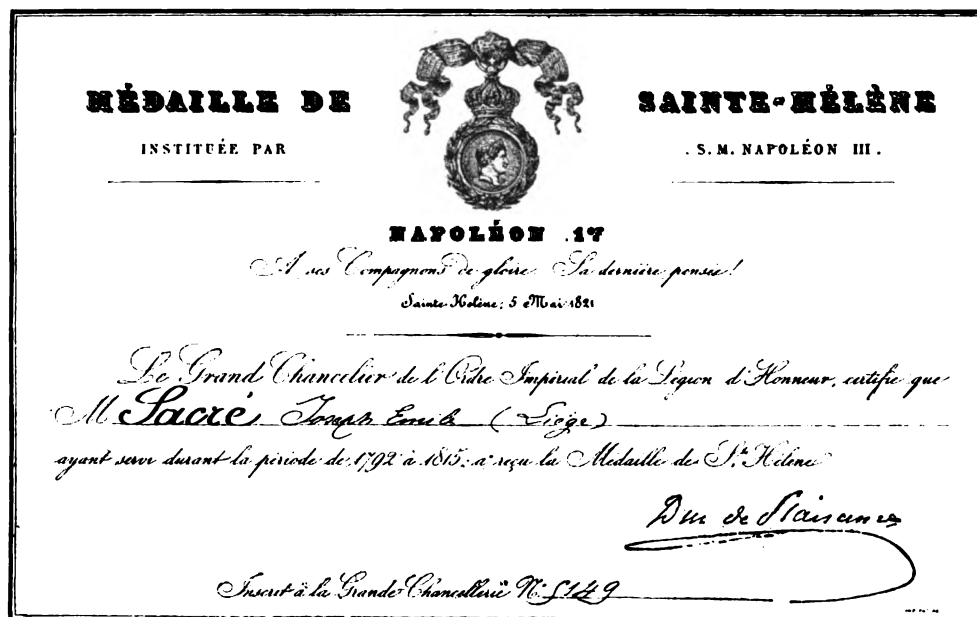 MÉDAILLE DE SAINTE-HÉLÈNE
INSTITUÉE PAR S.M. NAPOLÉON III.
NAPOLÉON 1er
A ses Compagnons de gloire. Sa dernière pensée!
Sainte Hélène; 5 Mai 1821
Le Grand Chancelier de l'Ordre Impérial de la Légion d'Honneur, certifie que
M Sacré Joseph Emile (Liège)
ayant servi durant la période de 1792 à 1815, a reçu la Médaille de Ste Hélène
Duc de Plaisance
Inscrit à la Grande Chancellerie No 5149